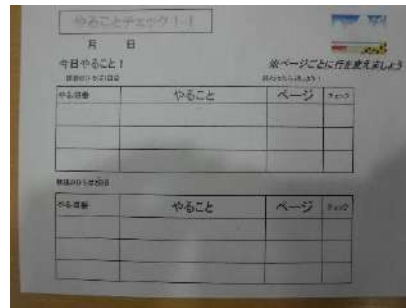 やることチェック！！
月　日
今日やること！
※ページごとに行を変えましょう
やる順番　やること　ページ　チェック
やる順番　やること　ページ　チェック